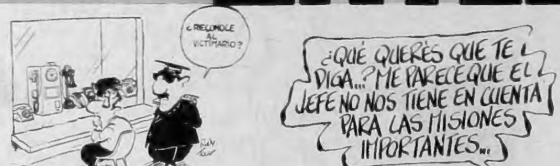 ¿RECONOCE
AL
VICTIMARIO?
¿QUÉ QUERÉS QUE TE
DIGA...? ME PARECE QUE EL
JEFE NO NOS TIENE EN CUENTA
PARA LAS MISIONES
IMPORTANTES...